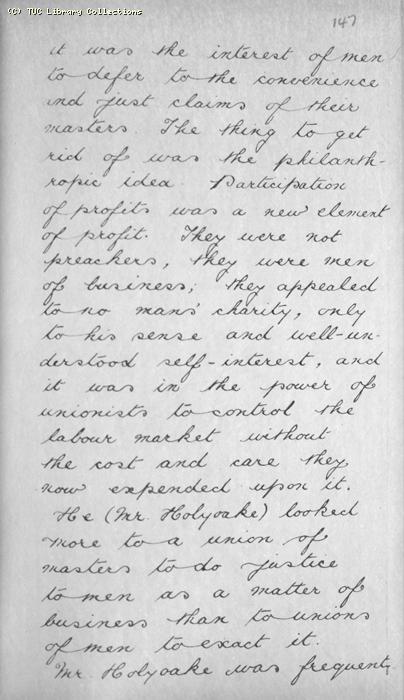 (C) TUC Library Collections
147
it was the interest of men
to defer to the convenience
and just claims of their
masters. The thing to get
rid of was the philanth-
ropic idea. Participation
of profits was a new element
of profit. They were not
preachers, they were men
of business; they appealed
to no mans' charity, only
to his sense and well-un-
derstood self-interest, and
it was in the power of
unionists to control the
labour market without
the cost and care they
now expended upon it.
He (Mr. Holyoake) looked
more to a union of
masters to do justice
to men as a matter of
business than to unions
of men to exact it.
Mr. Holyoake was frequent